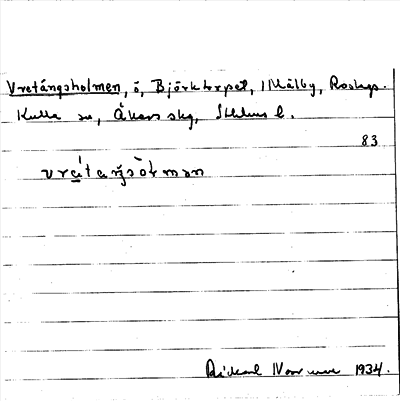 Vretängsholmen, ö, Björktorpet, Målby, Roslags-
Kulla sn, Åkers skg, Sthlms l.
83
vrétaŋsòlmən
Rickard 1934.